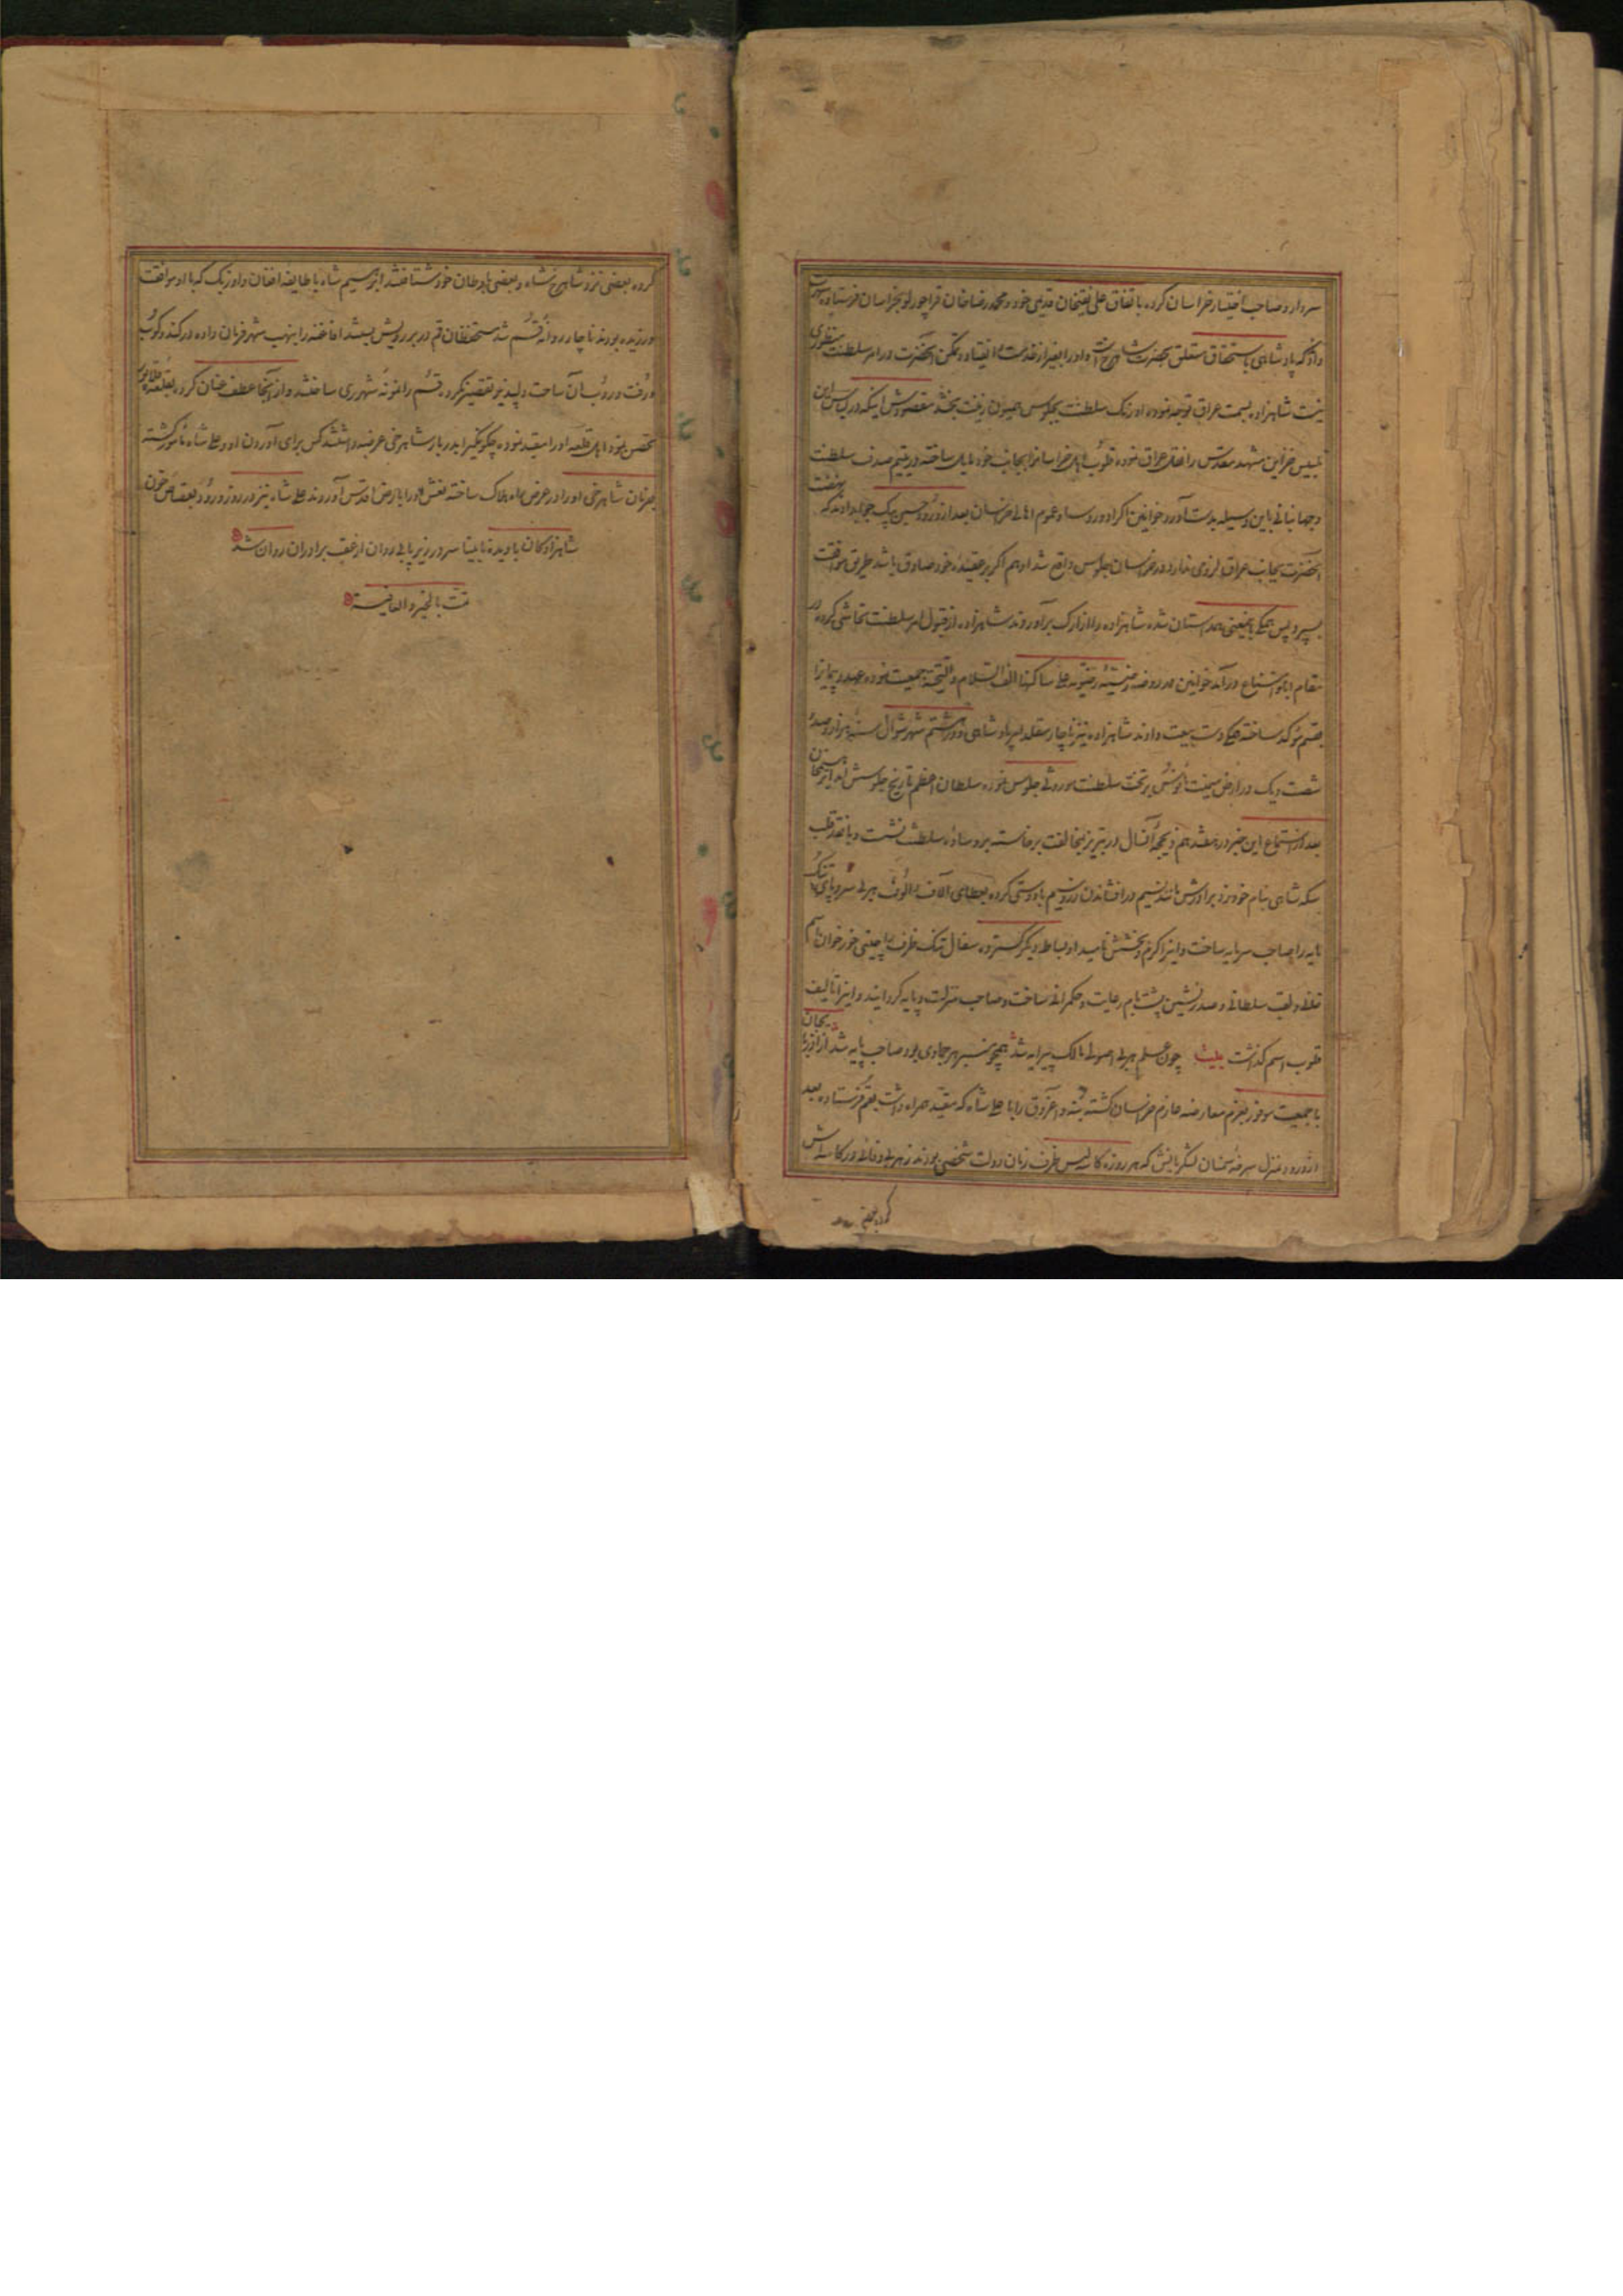 سردار و صاحب اختیار خراسان کرده باتفاق علی نقیخان قدیمی خود و محمد رضا خان قراچورلو بخراسان فرستاده شهرت
داد که پادشاهی باستحقاق متعلق بحضرت شاهرخ است و او را بغیر از خدمت و انقیاد و تمکن آنحضرت در امر سلطنت منظوری
نیست شاهزاده بسمت عراق توجه نموده اورنگ سلطنت بجلوس همیون زینت بخشد مقصودش اینکه در لباس این
تلبیس خزاین مشهد مقدس را نقل عراق نموده قلوب اهل خراسانرا بجانب خود مایل ساخته در یتیم صدف سلطنت
و جهانبانی باین وسیله بدست آورد خوانین اکراد و روسا و عموم اهالی خراسان بعد از ورود حسین بیک جواب دادند که نهضت
آنحضرت بجانب عراق لزومی ندارد در خراسان جلوس واقع شد او هم اگر بر عقیده خود صادق باشد طریق موافقت
بسپرد پس همگی باینمعنی همداستان شده شاهزاده را از ارک برآوردند شاهزاده از قبول امر سلطنت تحاشی کرده در
مقام ابا و امتناع درآمد خوانین در روضه رضیه رضویه علی ساکنها الف السلام و التحیة جمعیت نموده عهد و پیمانرا
بقسم موکد ساخته همگی دست بیعت دادند شاهزاده نیز ناچار متقلد امر پادشاهی و در هشتم شهر شوال سنه هزار و صد و
شصت و یک در ارض میمنت مأنوس بر تخت سلطنت موروثی جلوس نموده سلطان اعظم تاریخ جلوسش آمد ابراهیمخان
بعد از استماع این خبر در هفدهم ذیحجه آنسال در تبریز بمخالفت برخاسته بر وساده سلطنت نشست و با نقد قلب
سکه شاهی بنام خود زد برادرش مانند نسیم در افشاندن زر و سیم بادوستی کرده بعطای آلاف و الوف هر بی سر و پای تنک
مایه را صاحب سرمایه ساخت و اینرا کرم و بخشش نامید او بساط دیگر گسترده سفال تنک ظرف را چینی خورخوان باسم
خانی و لقب سلطانی و صدرنشین پشت بام رعایت و حکمرانی ساخت و صاحب منزلت و پایه گردانید و اینرا تالیف
قلوب اسم گذاشت بیت چون علم هر بی اصولی مالک پیرایه شد همچو منبر هر جمادی بود صاحب پایه شد از آذربایجان
با جمعیت موفور بعزم معارضه عازم خراسان گشته بنه و اغروق را با علی شاه که مقید همراه داشت بقم فرستاده بعد
از ورود منزل سرخه سمنان لشکریانش که هر روزه کاسه لیس ظرف زمان دولت شخصی بودند زهر بی وفائی در کاسه اش
کرده بعضی
کرده بعضی نزد شاهرخ شاه و بعضی باوطان خود شتافتند ابراهیم شاه با طایفه افغان و اوزبک که با او موافقت
ورزیده بودند ناچار روانه قم شد مستحفظان قم در بر رویش بستند افاغنه را بنهب شهر فرمان داده در کند و کوب
و رفت و روب آن ساحت دلپذیر تقصیر نکرده قم را نمونه شهر ری ساختند و از آنجا عطف عنان کرده بقلعه قلاپور
متحصن شد اهل قلعه او را مقید نموده چگونگی را بدربار شاهرخی عرضه داشتند کس برای آوردن او و علی شاه مامور گشته
بفرمان شاهرخی او را در عرض راه هلاک ساخته نعش او را بارض اقدس آوردند علی شاه نیز در روز ورود بقصاص خون
شاهزادگان با دیده نابینا سر در زیر پا بی روان از عقب برادران روان شد
تمت بالخیر و العافیة